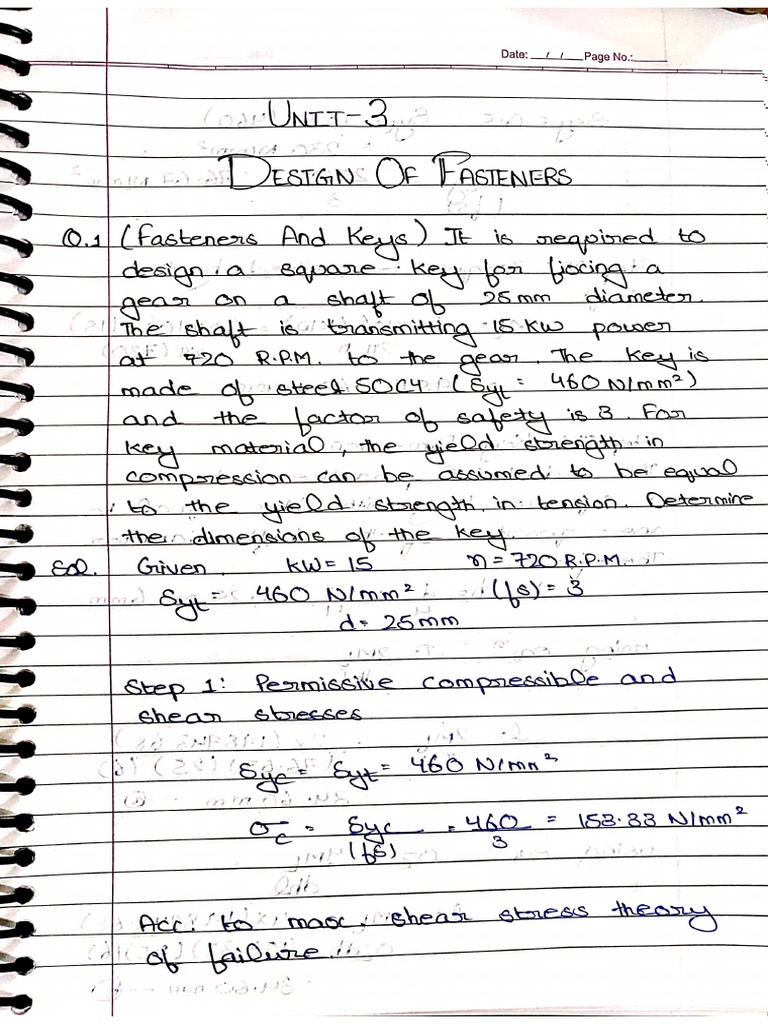 Date: __/__/____ Page No.:______
UNIT-3
DESIGN OF FASTENERS
Q.1 (Fasteners And Keys) It is required to
design a square key for fixing a
gear on a shaft of 25mm diameter.
The shaft is transmitting 15 KW power
at 720 R.P.M. to the gear. The key is
made of steel 50C4 (Syt = 460 N/mm²)
and the factor of safety is 3. For
key material, the yield strength in
compression can be assumed to be equal
to the yield strength in tension. Determine
the dimensions of the key.
Sol. Given KW = 15 n = 720 R.P.M.
Syt = 460 N/mm² (fs) = 3
d = 25mm
Step 1: Permissive compressible and
shear stresses
Syc = Syt = 460 N/mm²
σc = Syc/(fs) = 460/3 = 153.33 N/mm²
Acc. to max. shear stress theory
of failure